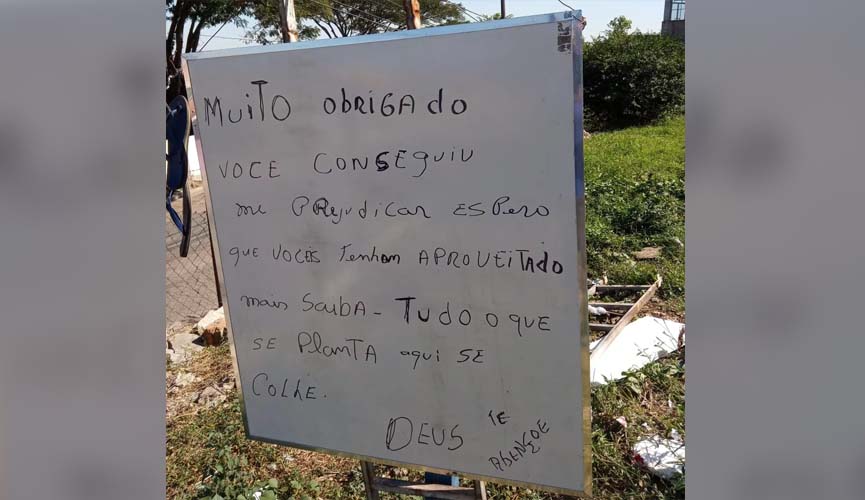 MUITO OBRIGADO
VOCE CONSEGUIU
me PREJUDICAR ESPERO
QUE VOCÊS TENHAM APROVEITADO
mais SAIBA - TUDO O QUE
SE PLANTA aqui SE
COLHE.
DEUS TE
ABENÇOE